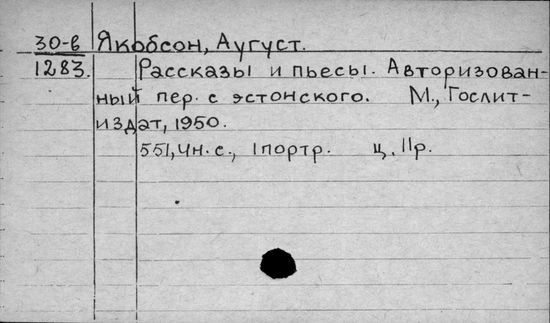 30-в Якобсон, Август.
1283. Рассказы и пьесы. Авторизован-
ный пер. с эстонского. М., Гослит-
издат, 1950.
551, чн. с., 1 портр. ц. 11р.